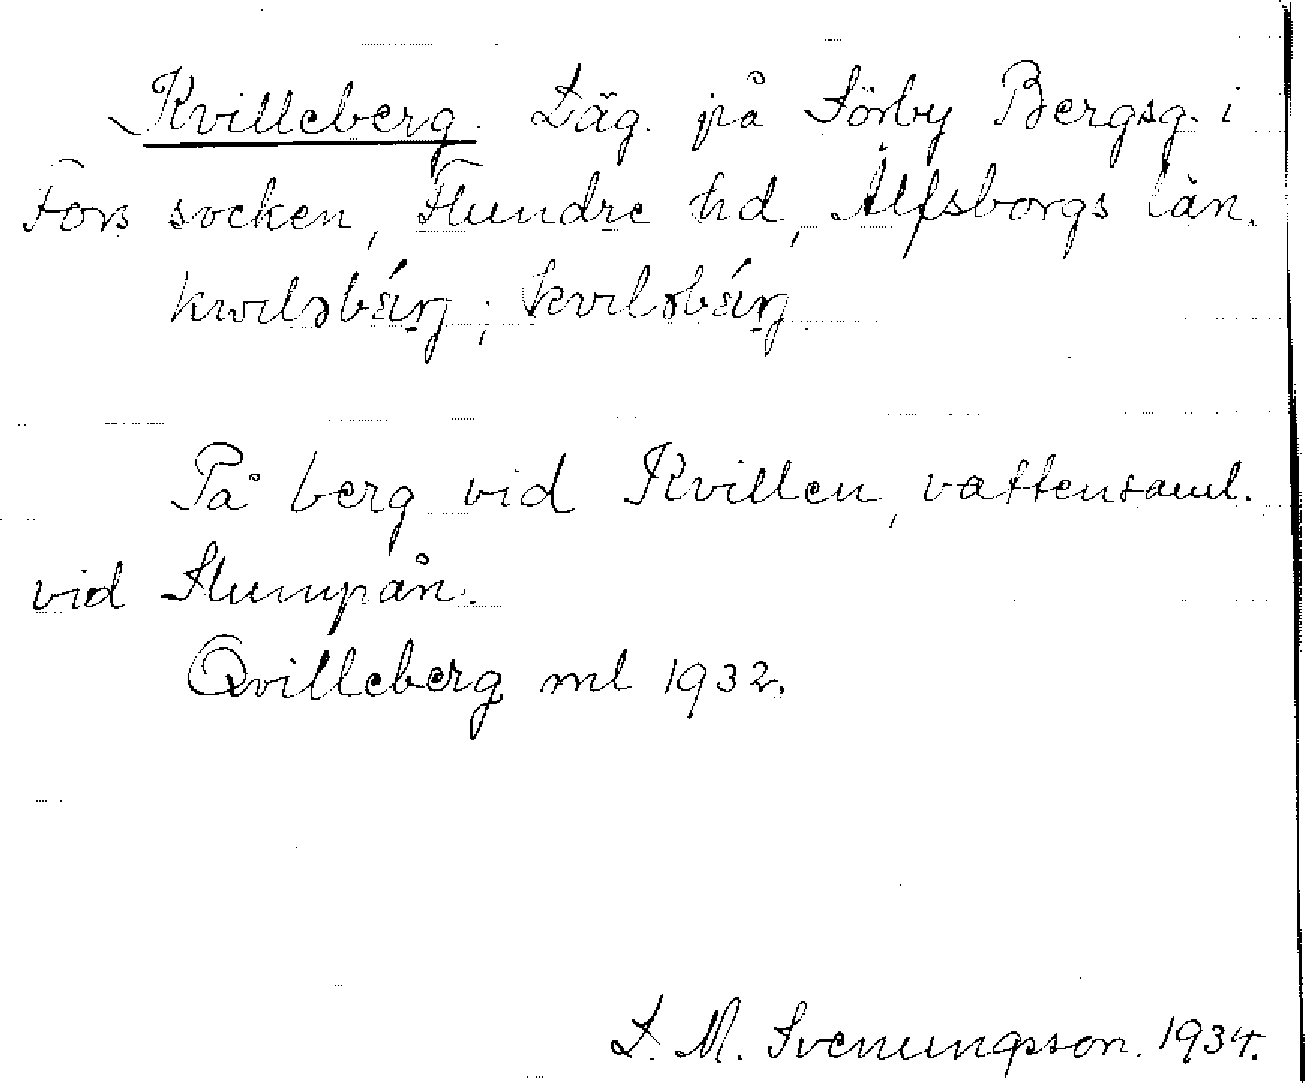 Kvilleberg. Läg. på Sörby Bergsg. i
Fors socken, Flundre hd, Älfsborgs län.
På berg vid Kvillen, vattensaml.
vid Slumpån.
Qvilleberg ml 1932.
L. M. Svenungsson. 1934.